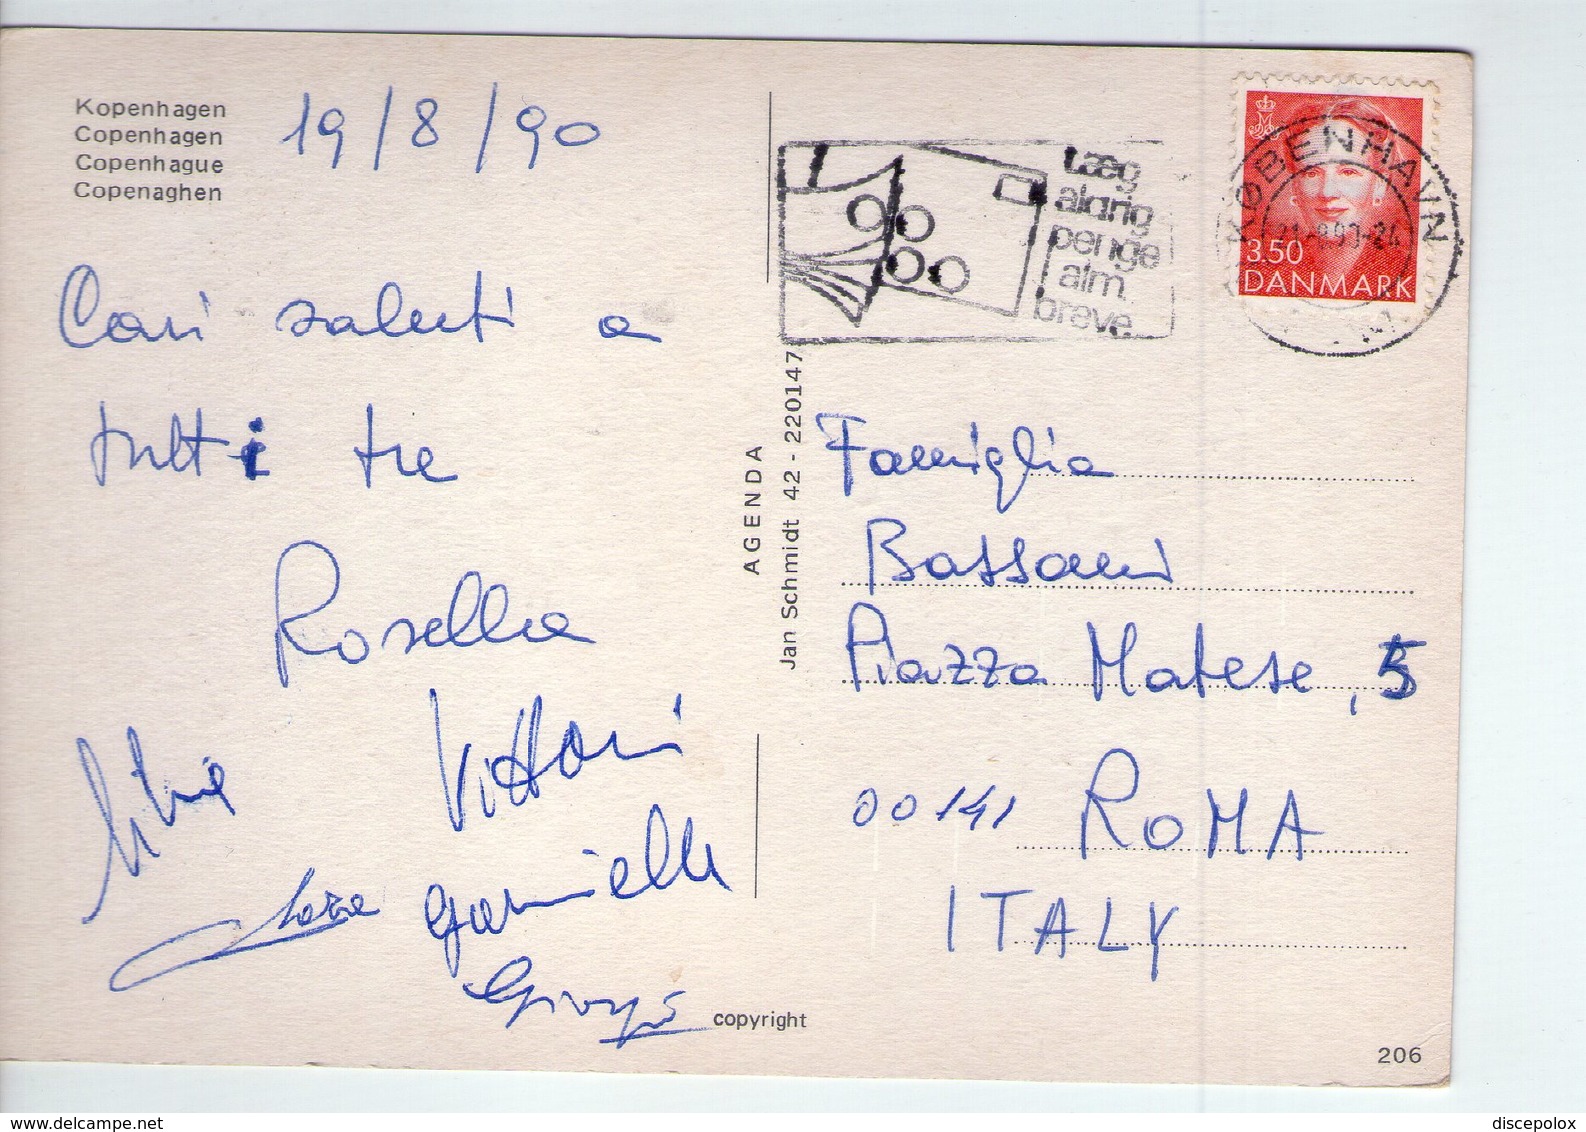 Kopenhagen
Copenhagen
Copenhague
Copenaghen
19/8/90
Cari saluti a
tutti tre
Rosella
Silvia
Vittorio
Gabriella
Giorgio
copyright
AGENDA
Jan Schmidt 42 - 220147
Læg
aldrig
penge
i alm.
breve
KØBENHAVN
3.50
DANMARK
Famiglia
Bassani
Piazza Matese, 5
00141 ROMA
ITALY
206
www.delcampe.net
discepolox